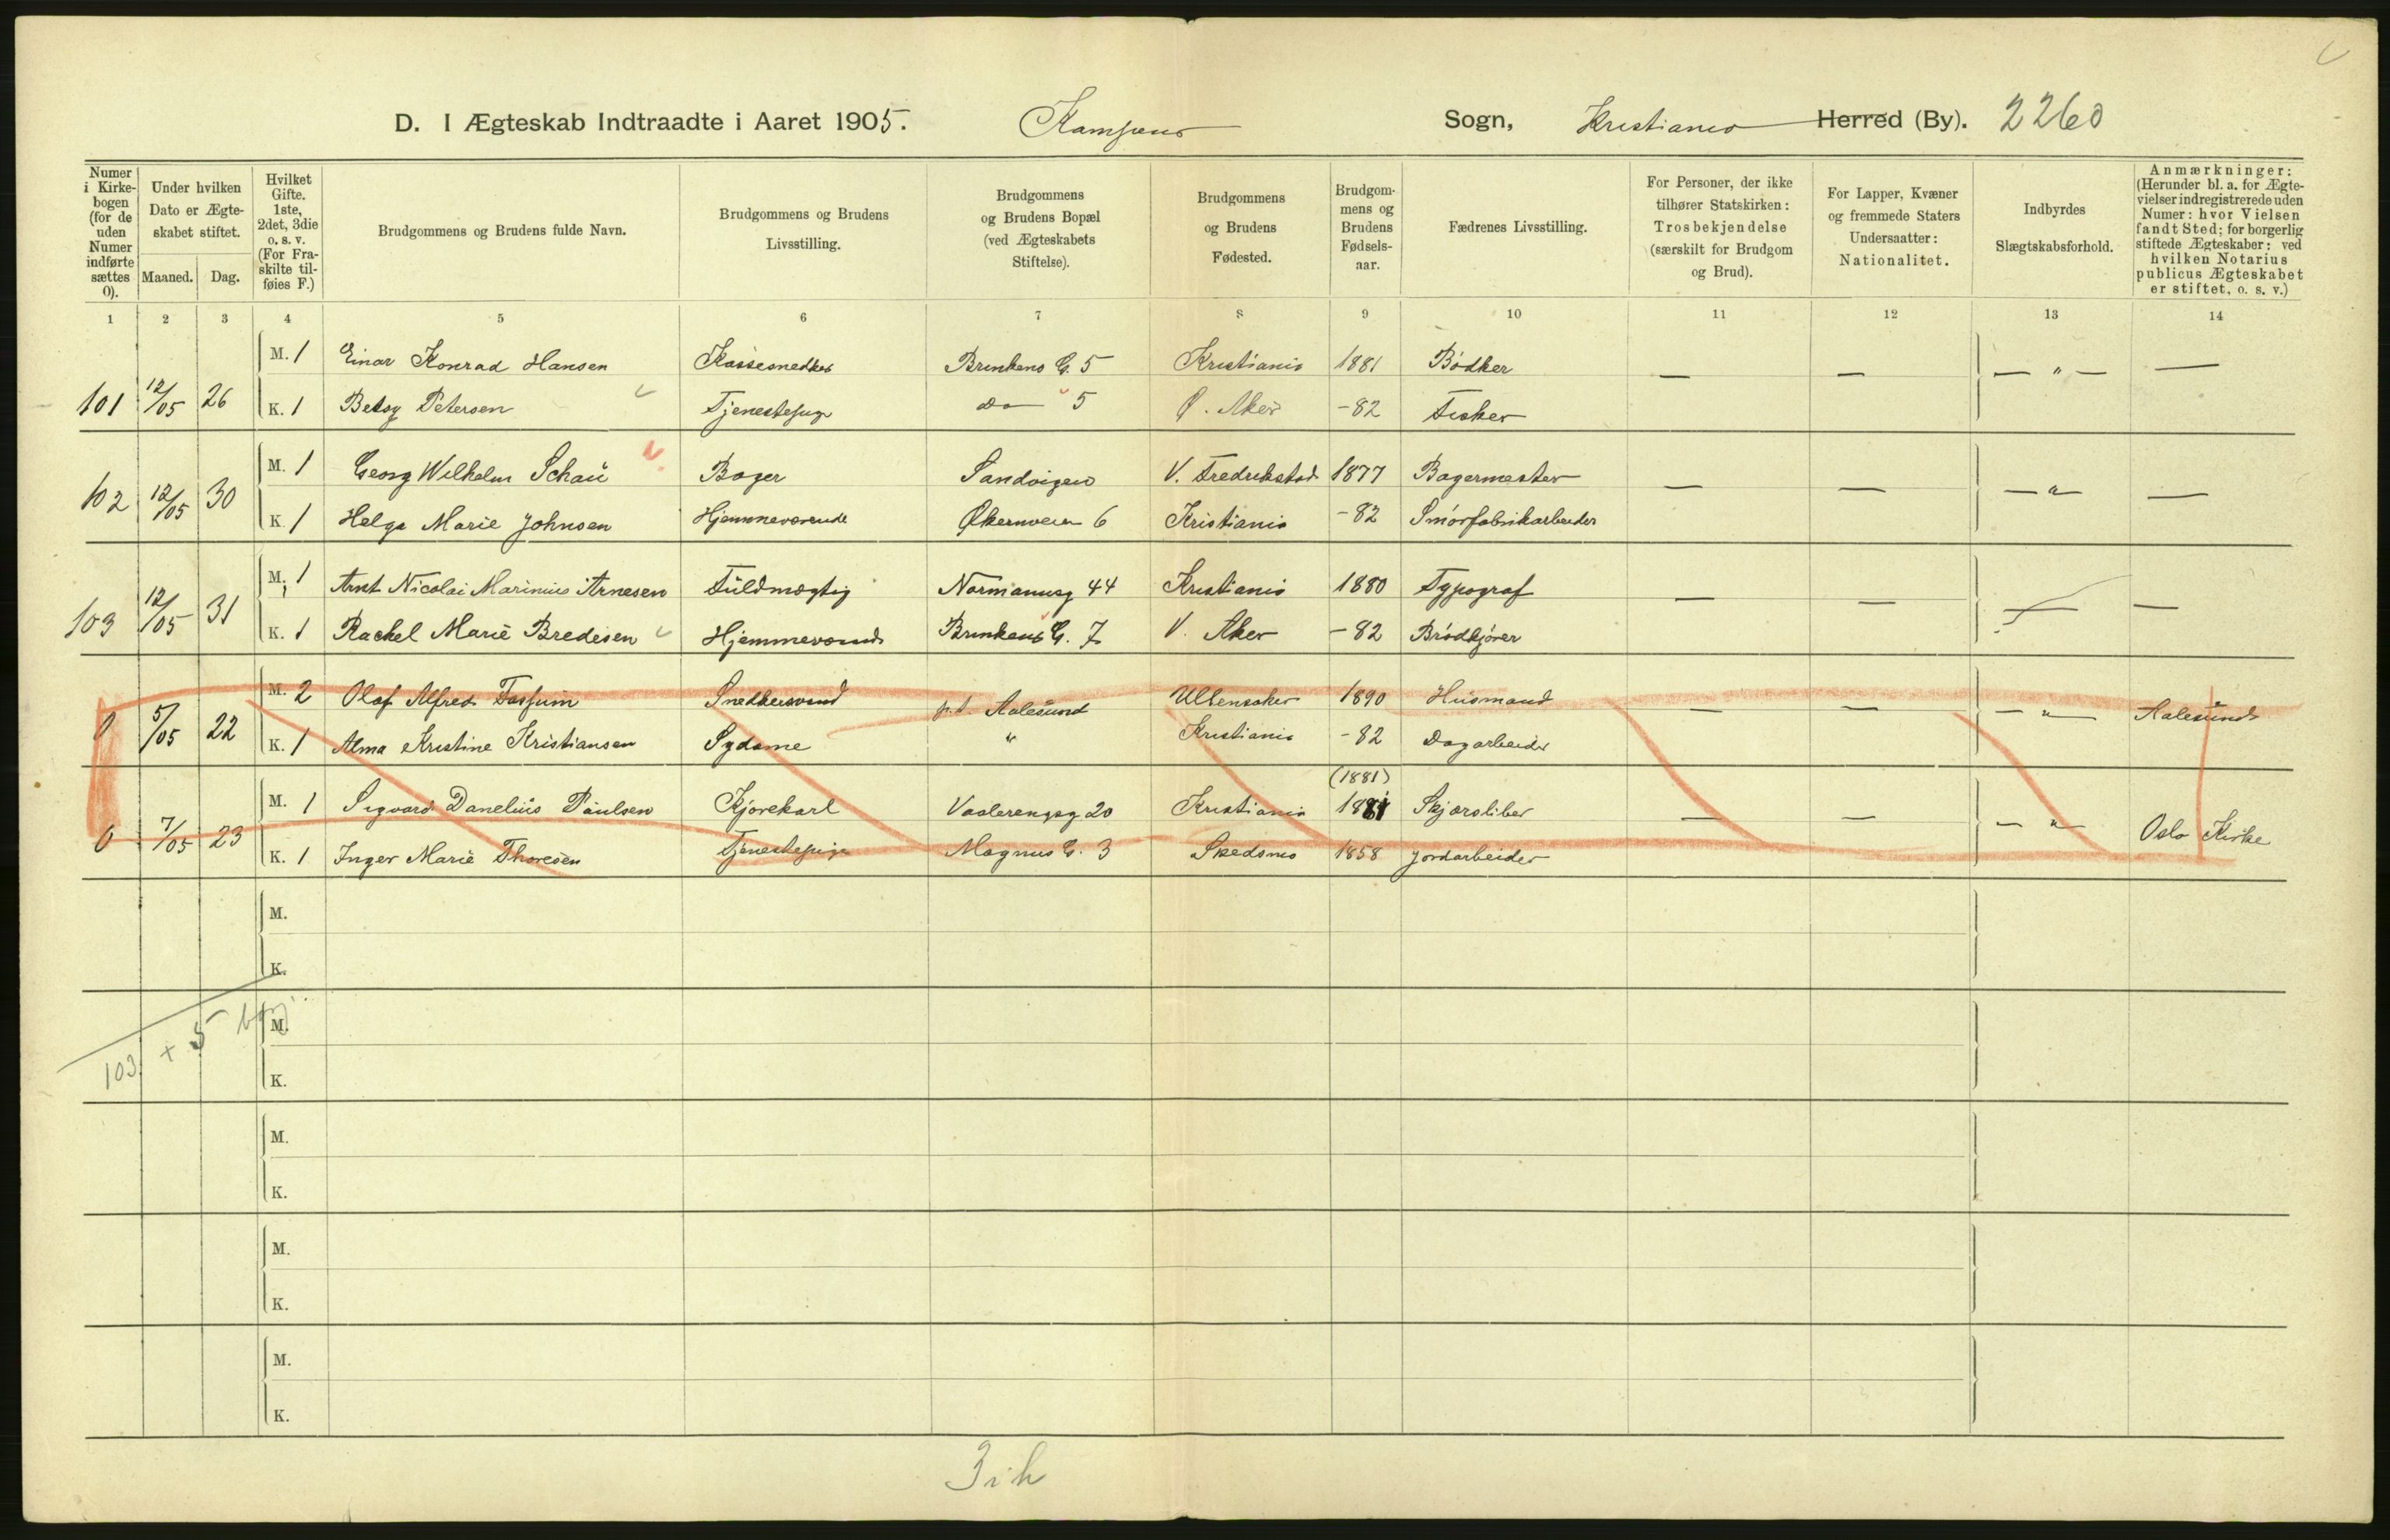 D. I Ægteskab Indtraadte i Aaret 1905. Kampens Sogn, Kristiania Herred (By). 2260
Numer i Kirkebogen (for de uden Numer indførte sættes 0).
Under hvilken Dato er Ægteskabet stiftet.
Maaned. Dag.
Hvilket Gifte. 1ste, 2det, 3die o. s. v. (For Fraskilte tilføies F.)
Brudgommens og Brudens fulde Navn.
Brudgommens og Brudens Livsstilling.
Brudgommens og Brudens Bopæl (ved Ægteskabets Stiftelse).
Brudgommens og Brudens Fødested.
Brudgommens og Brudens Fødselsaar.
Fædrenes Livsstilling.
For Personer, der ikke tilhører Statskirken: Trosbekjendelse (særskilt for Brudgom og Brud).
For Lapper, Kvæner og fremmede Staters Undersaatter: Nationalitet.
Indbyrdes Slægtskabsforhold.
Anmærkninger: (Herunder bl. a. for Ægtevielser indregistrerede uden Numer: hvor Vielsen fandt Sted; for borgerlig stiftede Ægteskaber: ved hvilken Notarius publicus Ægteskabet er stiftet, o. s. v.)
1 2 3 4 5 6 7 8 9 10 11 12 13 14
M. 1 Einar Konrad Hansen Kassesnedker Brinkens G. 5 Kristiania 1881 Bødker — — — " — —
101 12/05 26 K. 1 Betsy Petersen Tjenestepige do 5 Ø. Aker -82 Fisker
M. 1 Georg Wilhelm Schau Bager Sandvigen V. Fredrikstad 1877 Bagermester — — — " — —
102 12/05 30 K. 1 Helga Marie Johnsen Hjemmeværende Økernveien 6 Kristiania -82 Smørfabrikarbeider
M. 1 Arnt Nicolai Marinius Arnesen Fuldmægtig Normannsg 44 Kristiania 1880 Typograf — — — —
103 12/05 31 K. 1 Rachel Marie Bredesen Hjemmeværende Brinkens G. 7 V. Aker -82 Brødkjører
M. 2 Olaf Alfred Fossum Snedkersvend p.t. Aalesund Ullensaker 1890 Husmand — — — " — Aalesund
0 5/05 22 K. 1 Alma Kristine Kristiansen Sydame " Kristiania -82 Dagarbeider
(1881)
M. 1 Sigvard Danelius Paulsen Kjørekarl Vaalerengsg 20 Kristiania 1881 Skjærsliber — — — " — Oslo Kirke
0 7/05 23 K. 1 Inger Marie Thoresen Tjenestepige Magnus G. 3 Skedsmo 1858 Jordarbeider
M.
K.
M.
103 + 5
K.
M.
K.
M.
K.
M.
K.
3 i h